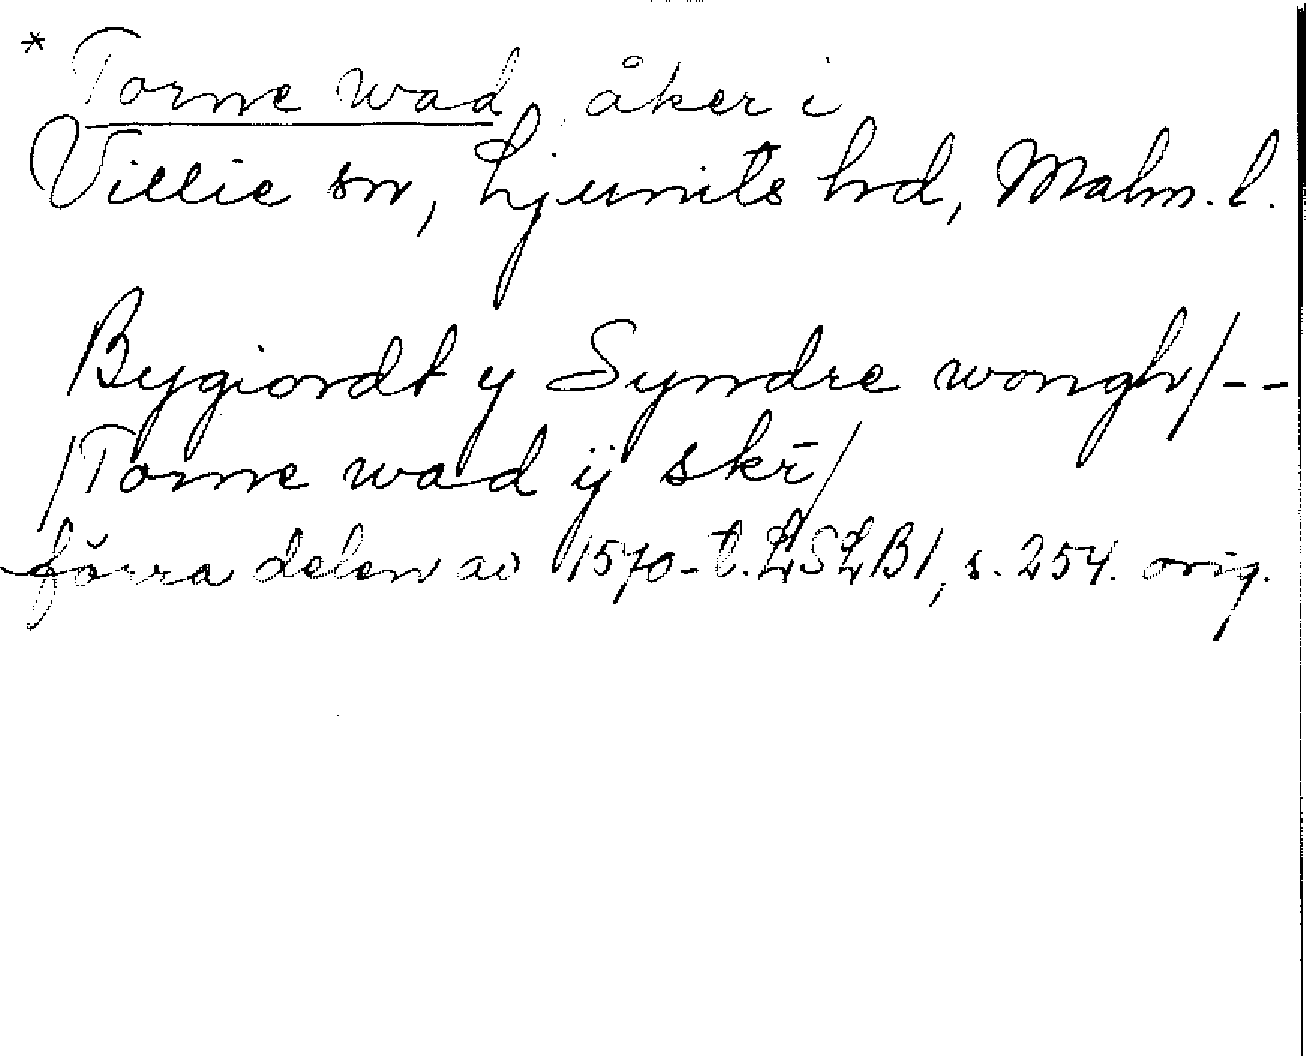 * Torne wad, åker i
Villie sn, Ljunits hrd, Malm. l.
Bygiordt y Syndre wongh/--
/Torne wad ij skr̄/
förra delen av 1570-t. LSLB1, s. 254. orig.